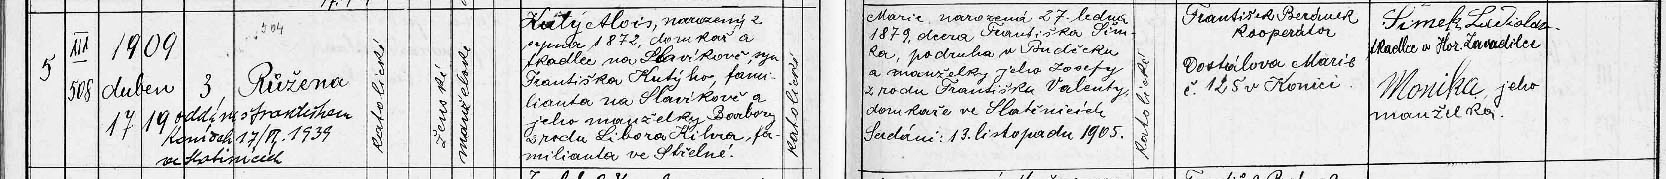 5
XIX
508
1909
duben 3 Růžena
17 19 oddána s Františkem
17/IV. 1939
504
katolické
ženské
manželské
Kutý Alois, narozený 2
srpna 1872, domkař a
tkadlec na Slavíkově, syn
Františka Kutýho, fami-
lianta na Slavíkově a
jeho manželky Barbory
z rodu Libora Hilvra, fa-
milianta ve Střelné.
katolické
Marie, narozená 27. ledna
1879, dcera Františka Šim-
ka, podruha v
a manželky jeho Josefy
z rodu Františka Valenty,
domkaře ve Slatěnicích
Sedání: 13. listopadu 1905.
katolické
František Beránek
kooperátor
Dostálova Marie
č. 125 v Konici.
Šimek
tkadlec v Hor. Zavadilce
Monika, jeho
manželka.